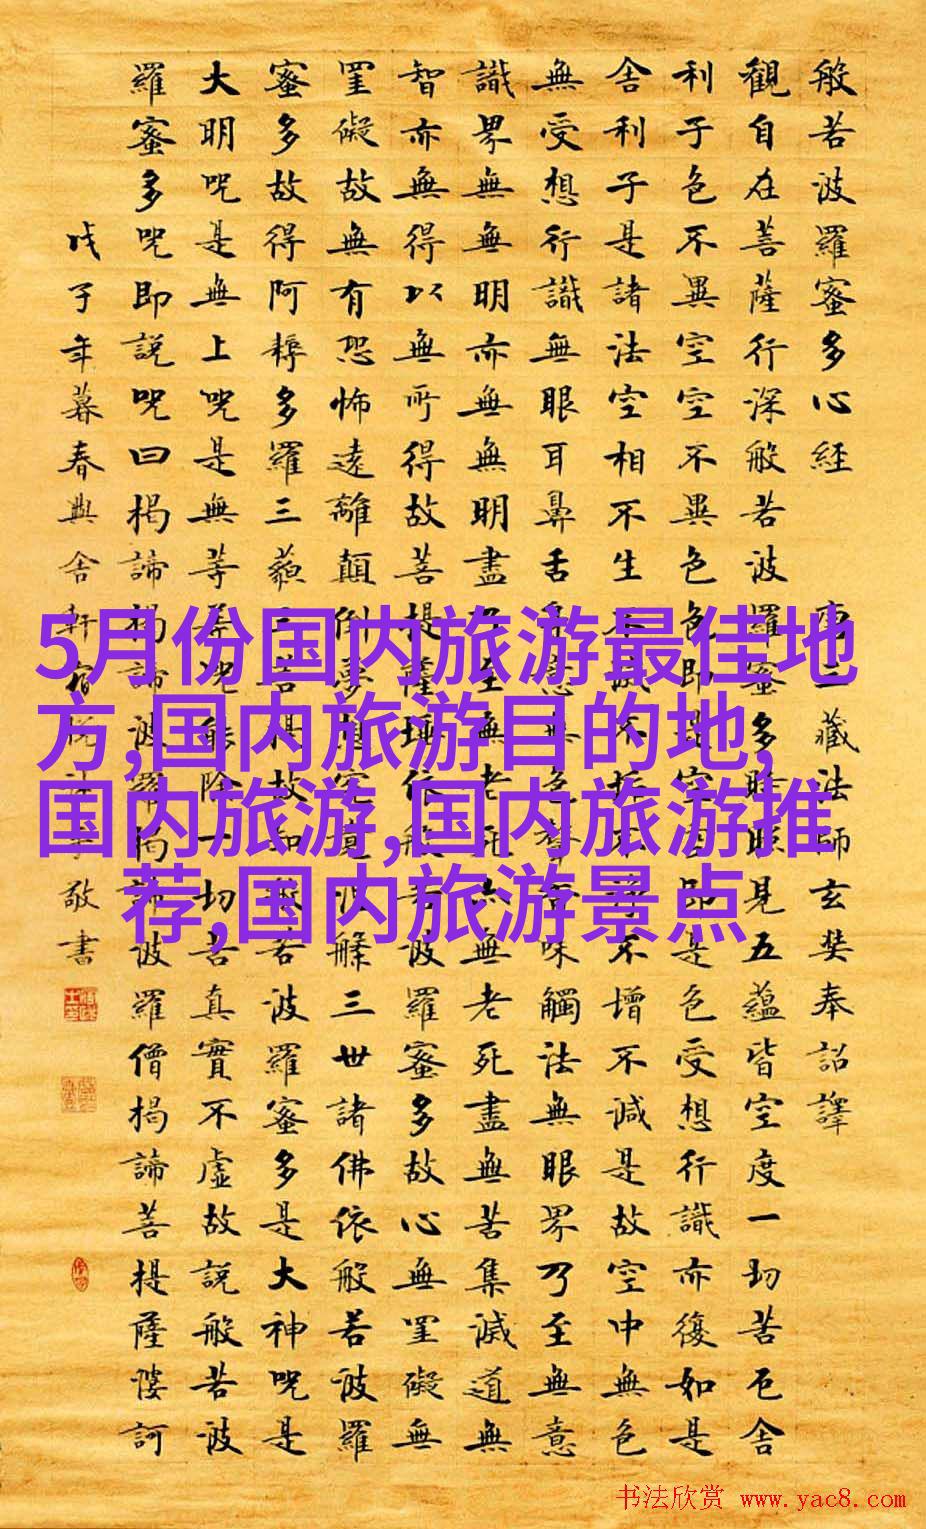 般若波羅蜜多心經 唐三藏法師玄奘奉詔譯
觀自在菩薩行深般若波羅蜜多時照見五蘊皆空度一切苦厄舍
利子色不異空空不異色色即是空空即是色受想行識亦復如是
舍利子是諸法空相不生不滅不垢不淨不增不減是故空中無色
無受想行識無眼耳鼻舌身意無色聲香味觸法無眼界乃至無意
識界無無明亦無無明盡乃至無老死亦無老死盡無苦集滅道無
智亦無得以無所得故菩提薩埵依般若波羅蜜多故心無罣礙無
罣礙故無有恐怖遠離顛倒夢想究竟涅槃三世諸佛依般若波羅
蜜多故得阿耨多羅三藐三菩提故知般若波羅蜜多是大神咒是
大明咒是無上咒是無等等咒能除一切苦真實不虛故說般若波
羅蜜多咒即說咒曰揭諦揭諦波羅揭諦波羅僧揭諦菩提薩婆訶
戊子年暮春興舍軒敬書
5月份国内旅游最佳地
方,国内旅游目的地,
国内旅游,国内旅游推
荐,国内旅游景点
书法欣赏 www.yac8.com